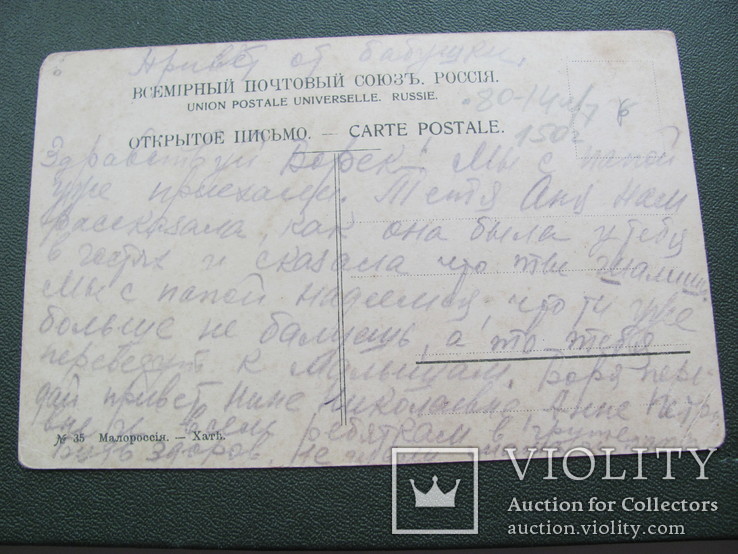 Привет от бабушки.
ВСЕМІРНЫЙ ПОЧТОВЫЙ СОЮЗЪ. РОССІЯ.
UNION POSTALE UNIVERSELLE. RUSSIE.
ОТКРЫТОЕ ПИСЬМО. — CARTE POSTALE.
150
Здравствуй Борек! Мы с папой
уже приехали. Тетя Аня нам
рассказала, как она была у тебя
в гостях и сказала что ты шалишь.
Мы с папой надеемся, что ты уже
больше не балишь, а то тебя
переведут к малышам. Боря пере-
дай привет Нине Николаевне Анне Петр
и всем ребяткам в группе
Будь здоров. Не
№ 35 Малороссія. — Хата.
VIOLITY
Auction for Collectors
auction.violity.com